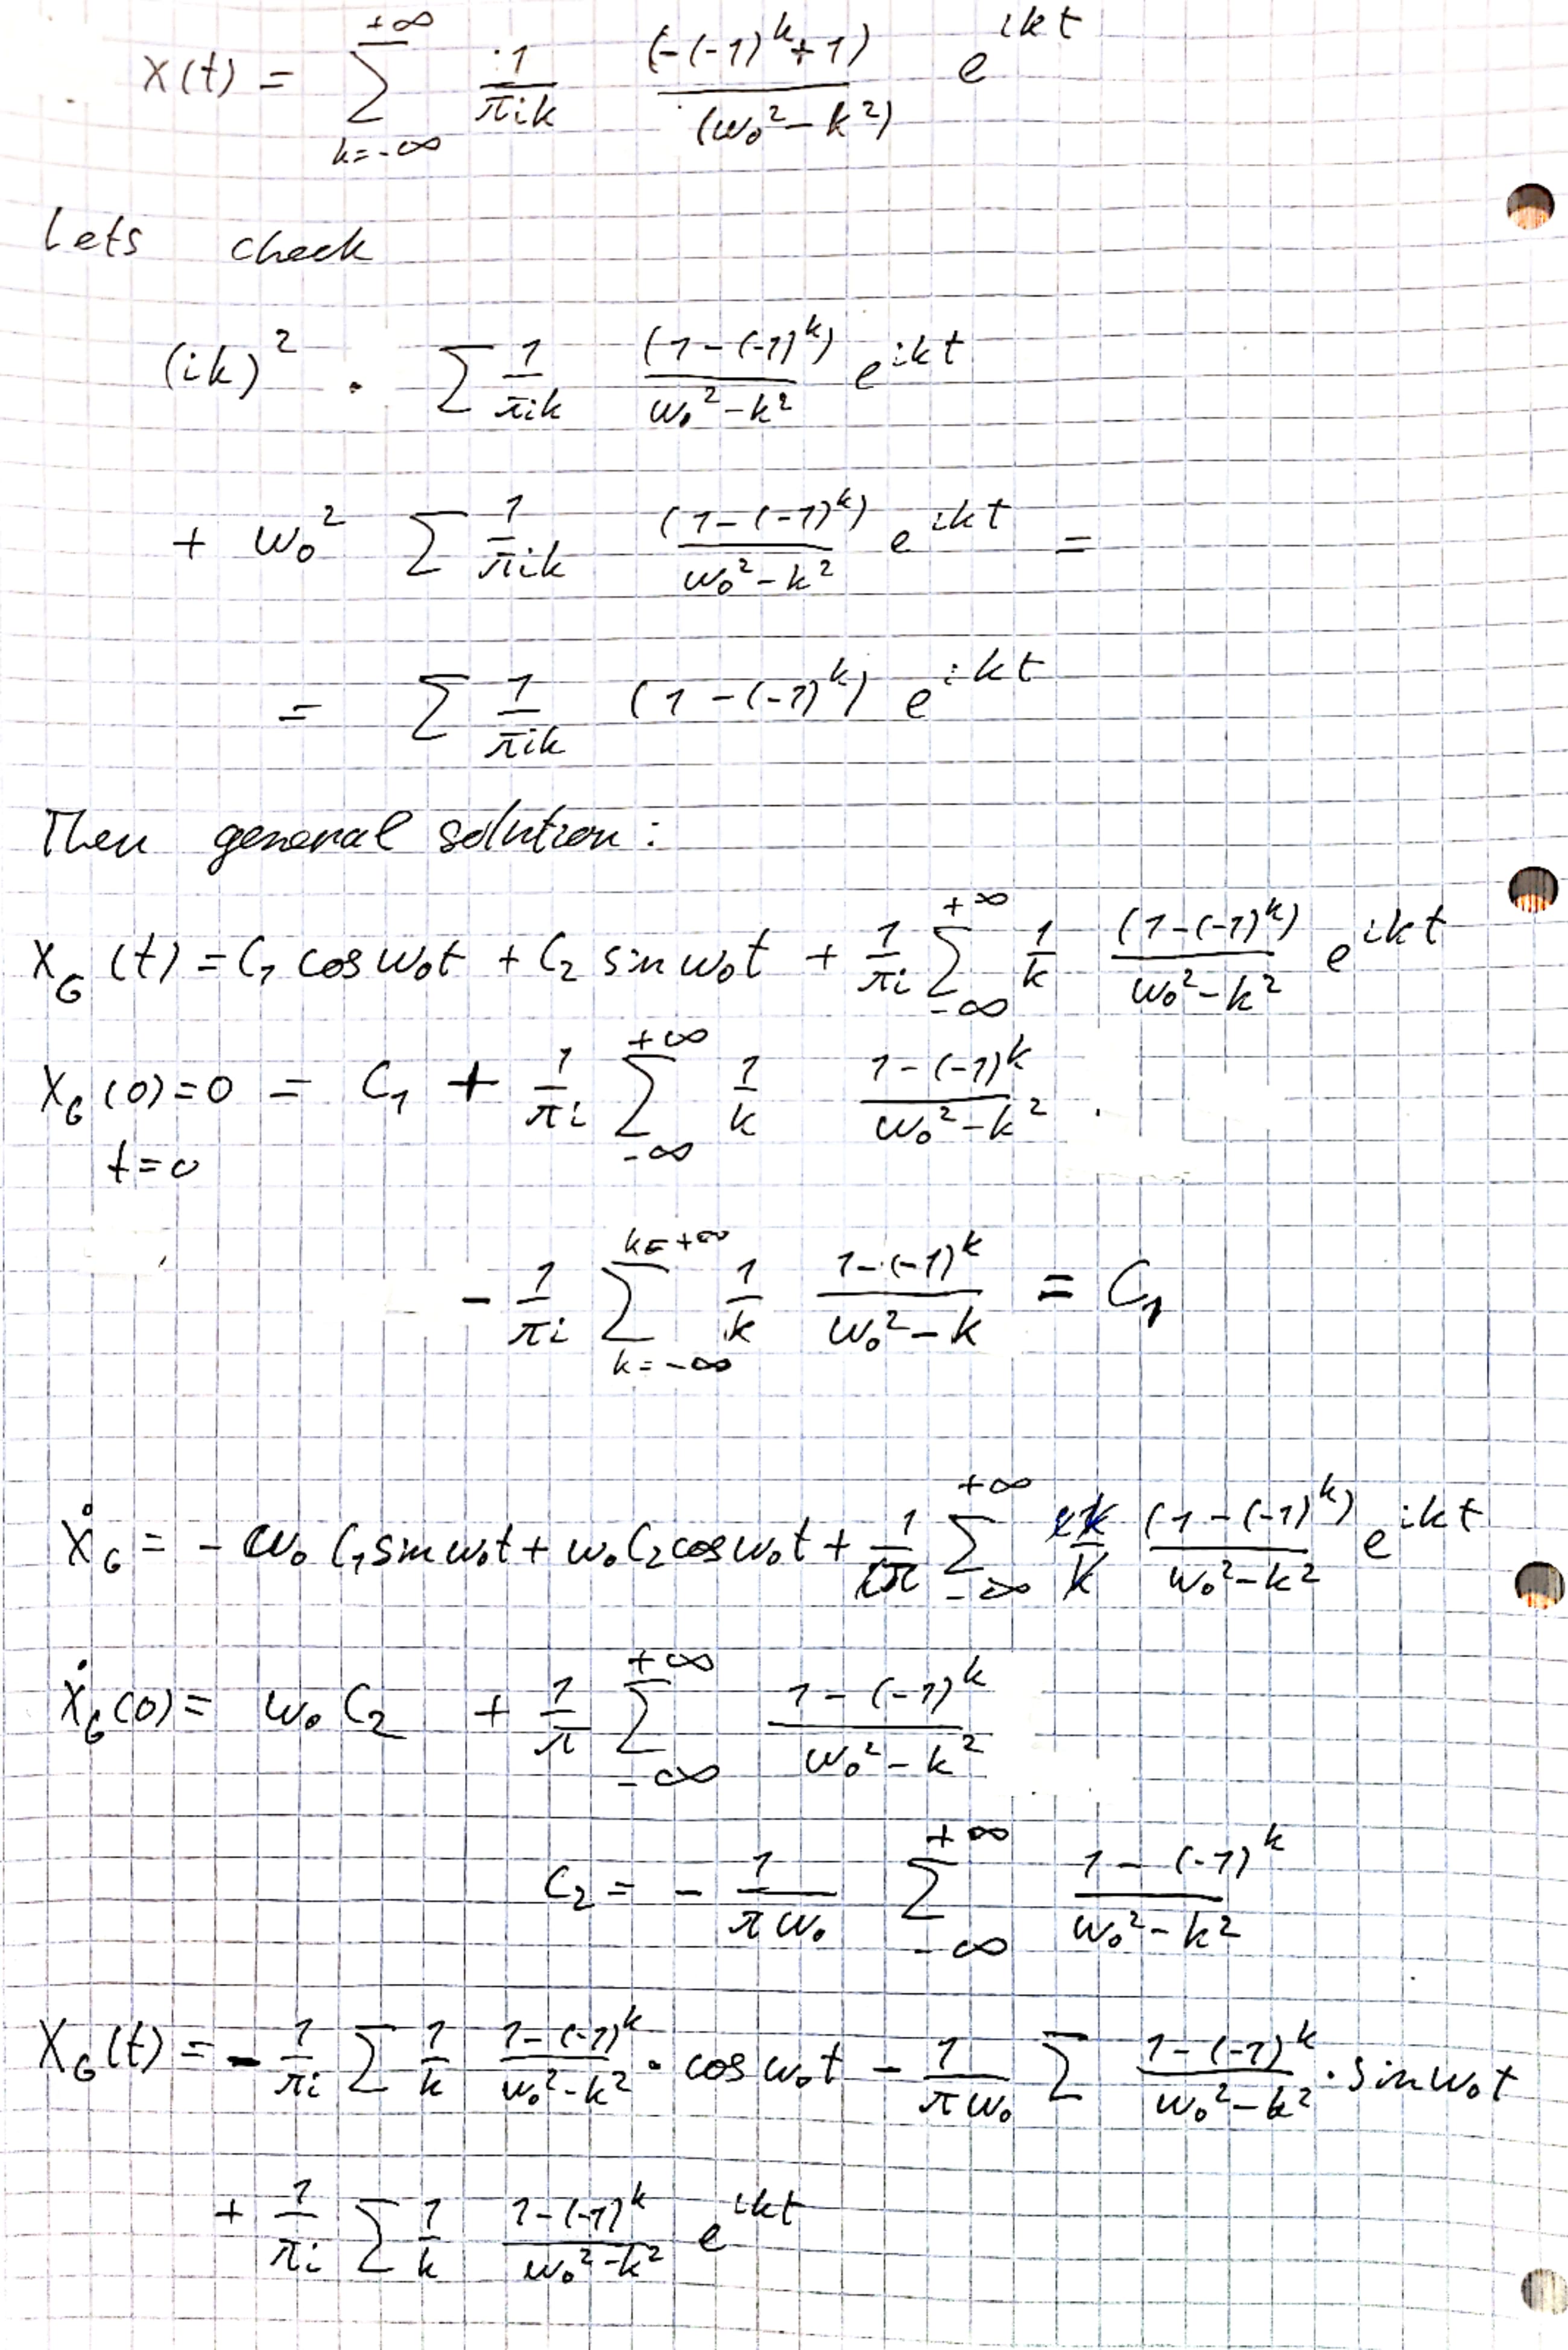 X(t) = \sum_{k=-\infty}^{+\infty} \frac{1}{\pi i k} \frac{(-(-1)^k + 1)}{(\omega_0^2 - k^2)} e^{ikt}
Lets check
(ik)^2 \cdot \sum \frac{1}{\pi i k} \frac{(1-(-1)^k)}{\omega_0^2 - k^2} e^{ikt}
+ \omega_0^2 \sum \frac{1}{\pi i k} \frac{(1-(-1)^k)}{\omega_0^2 - k^2} e^{ikt} =
= \sum \frac{1}{\pi i k} (1-(-1)^k) e^{ikt}
Then general solution:
X_G(t) = C_1 \cos \omega_0 t + C_2 \sin \omega_0 t + \frac{1}{\pi i} \sum_{-\infty}^{+\infty} \frac{1}{k} \frac{(1-(-1)^k)}{\omega_0^2 - k^2} e^{ikt}
X_G(0) = 0 = C_1 + \frac{1}{\pi i} \sum_{-\infty}^{+\infty} \frac{1}{k} \frac{1-(-1)^k}{\omega_0^2 - k^2}
t = 0
- \frac{1}{\pi i} \sum_{k=-\infty}^{k=+\infty} \frac{1}{k} \frac{1-(-1)^k}{\omega_0^2 - k} = C_1
\dot{X}_G = - \omega_0 C_1 \sin \omega_0 t + \omega_0 C_2 \cos \omega_0 t + \frac{1}{i\pi} \sum_{-\infty}^{+\infty} \frac{ik}{k} \frac{(1-(-1)^k)}{\omega_0^2 - k^2} e^{ikt}
\dot{X}_G(0) = \omega_0 C_2 + \frac{1}{\pi} \sum_{-\infty}^{+\infty} \frac{1-(-1)^k}{\omega_0^2 - k^2}
C_2 = - \frac{1}{\pi \omega_0} \sum_{-\infty}^{+\infty} \frac{1-(-1)^k}{\omega_0^2 - k^2}
X_G(t) = - \frac{1}{\pi i} \sum \frac{1}{k} \frac{1-(-1)^k}{\omega_0^2 - k^2} \cdot \cos \omega_0 t - \frac{1}{\pi \omega_0} \sum \frac{1-(-1)^k}{\omega_0^2 - k^2} \cdot \sin \omega_0 t
+ \frac{1}{\pi i} \sum \frac{1}{k} \frac{1-(-1)^k}{\omega_0^2 - k^2} e^{ikt}